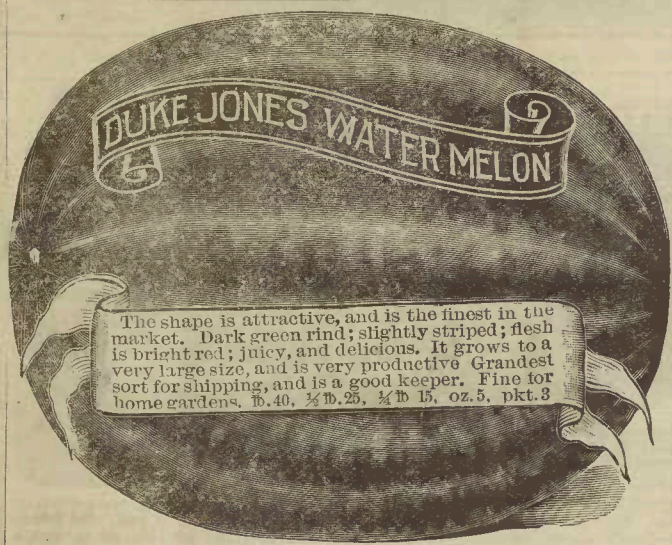 DUKE JONES WATER MELON
The shape is attractive, and is the finest in the
market. Dark green rind; slightly striped; flesh
is bright red; juicy, and delicious. It grows to a
very large size, and is very productive Grandest
sort for shipping, and is a good keeper. Fine for
home gardens, ℔.40, ½ ℔.25, ¼ ℔ 15, oz.5, pkt.3